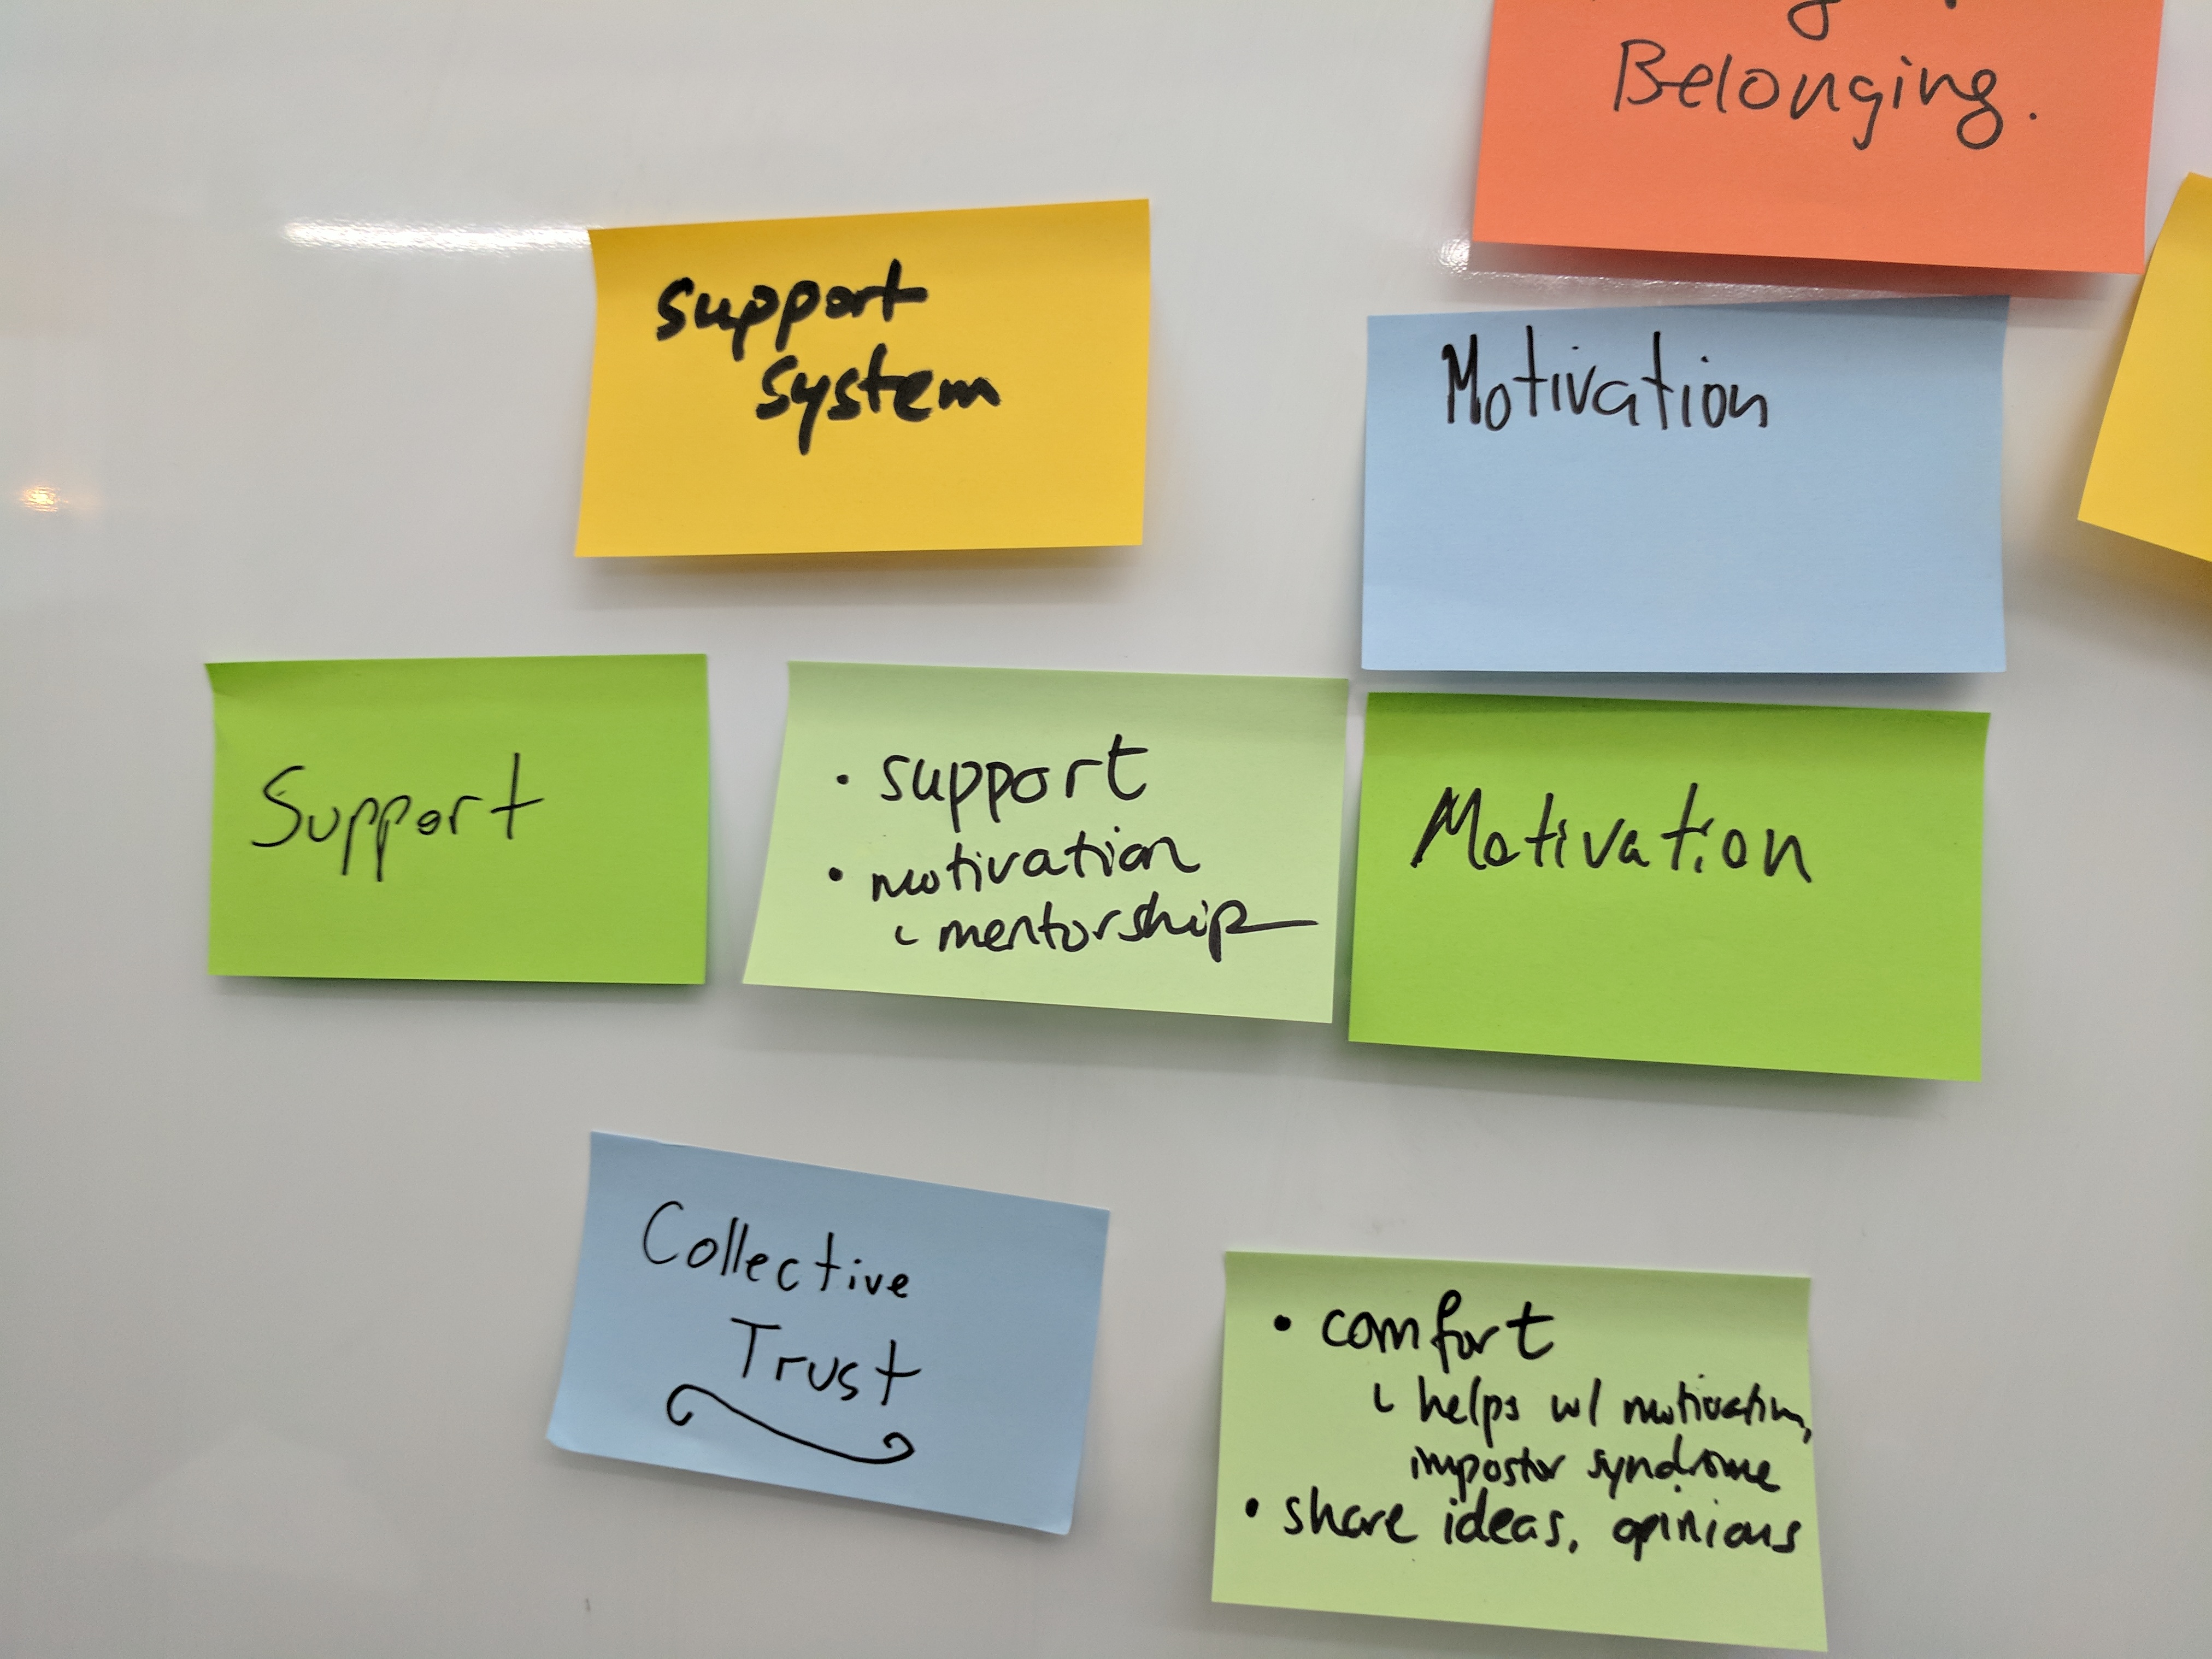 Belonging.
support
system
Motivation
Support
• support
• motivation
↳ mentorship
Motivation
Collective
Trust
• comfort
↳ helps w/ motivation,
impostor syndrome
• share ideas, opinions